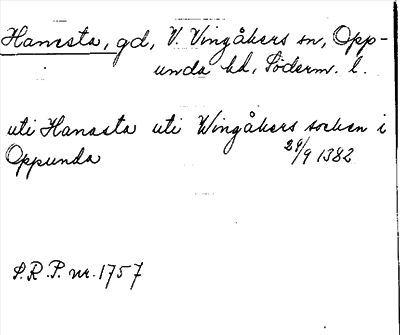 Hanesta, gd, V. Vingåkers sn, Opp-
unda hd, Söderm. l.
uti Hanasta uti Wingåkers socken i
Oppunda 29/9 1382
S.R.P. nr. 1757